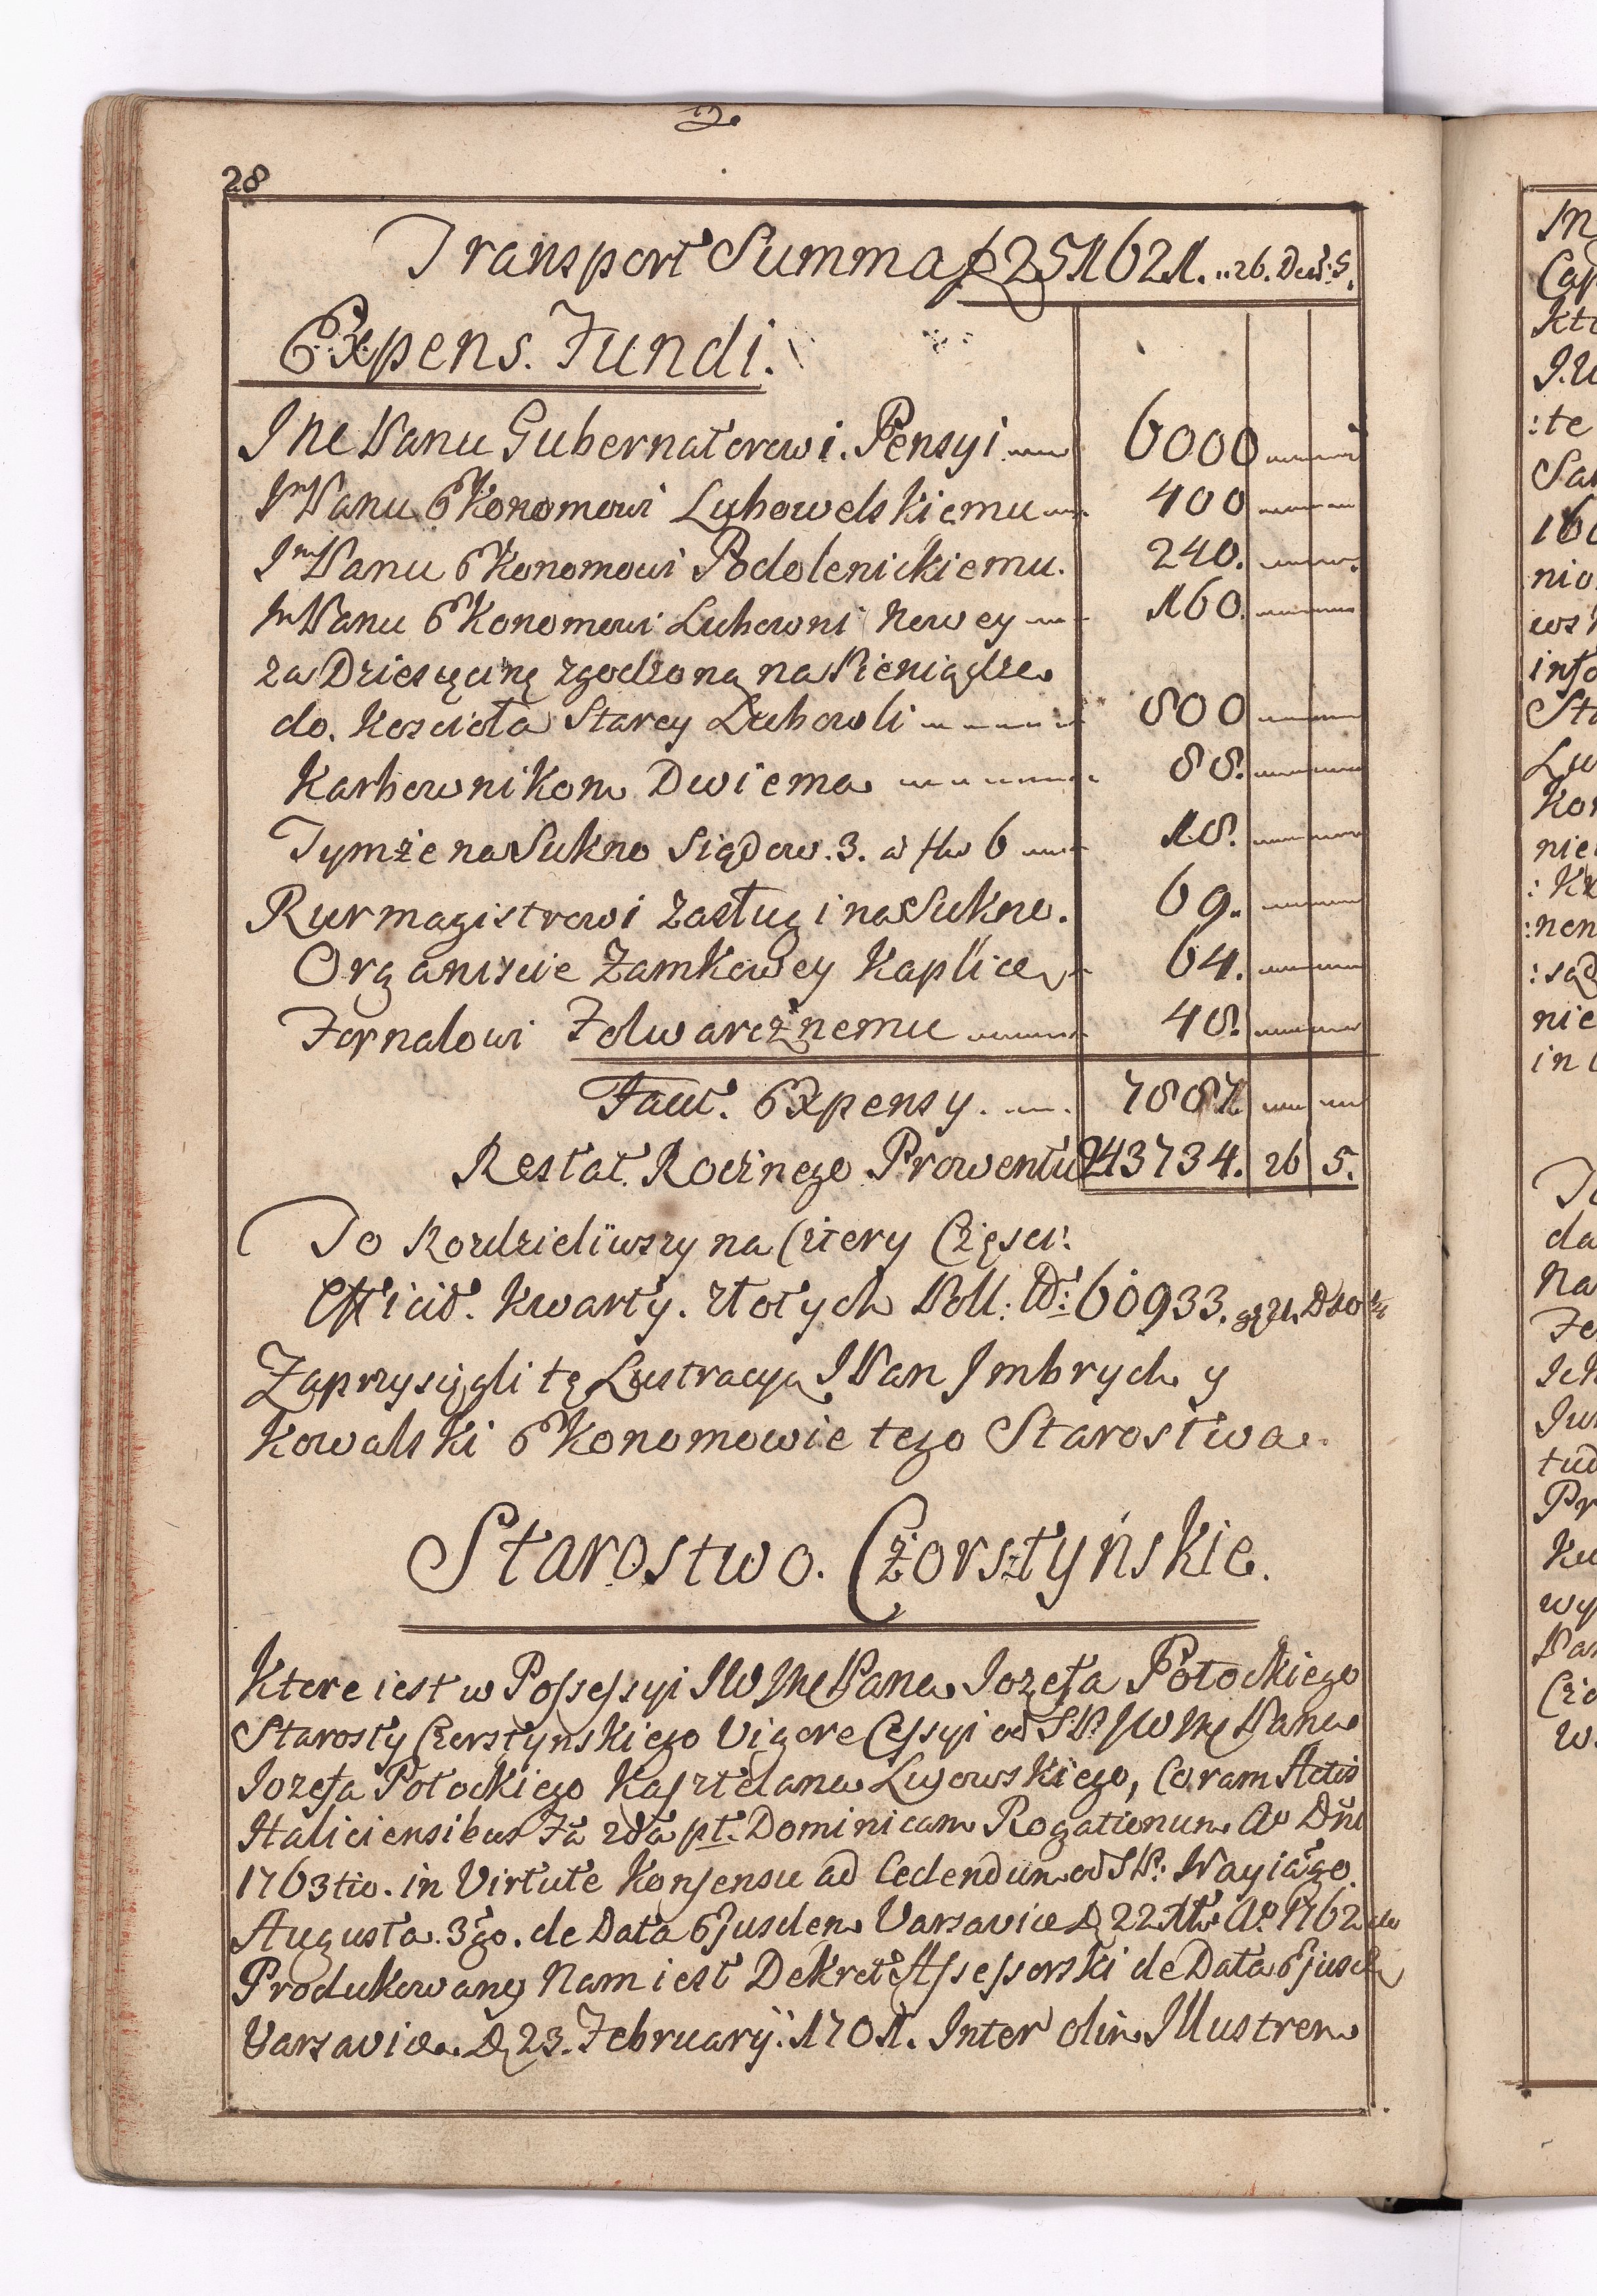 28
Transport Summa zł 251621. „ 26. Den: 5.
Expens. Fundi.
Jme Panu Gubernatorowi. Pensyi 6000
Jm Panu Ekonomowi Lubowelskiemu 400
Jm Panu Ekonomowi Podolenickiemu. 240.
Jm Panu Ekonomowi Lubowni Nowey 160.
za Dziesięcinę zgodzoną na Pieniądze
do. Koscioła Starey Lubowli 800
Karbownikom Dwiema 88.
Tymże na Sukno Siągow. 3. a fl. 6 18.
Rurmagistrowi zasług i na Sukno. 69.
Organiscie Zamkowey Kaplice 64.
Fornalowi Folwarcznemu 48.
Facit. Expensy. 7887
Restat. Rocznego Prowentu 243734. 26 5.
To Rozdzieliwszy na Cztery Częsci:
Efficit. Kwarty. złotych Poll: 60933. gr 21. D 10
Zaprzysięgli tę Lustracyą JPan Jmbrych y
Kowalski Ekonomowie tego Starostwa.
Starostwo. Czorsztyńskie.
Ktore iest w Possessyi JW Jme Pana Jozefa Potockiego
Starosty Czorsztynskiego Vigore Cessyi od S. P. JW Jme Pana
Jozefa Potockiego Kasztelana Lwowskiego, Coram Actis
Haliciensibus Fa 2da pt. Dominicam Rogationum Ao Dni
1763tio. in Virtute Konsensu ad Cedendum od S. P. Nayiasgo
Augusta. 3go. de Data Ejusdem Varsaviæ D 22 Ao 1762do
Produkowany Nam iest Dekret Assessorski de Data Ejusd
Varsaviæ. D 23. February. 1701. Inter olim Illustrem